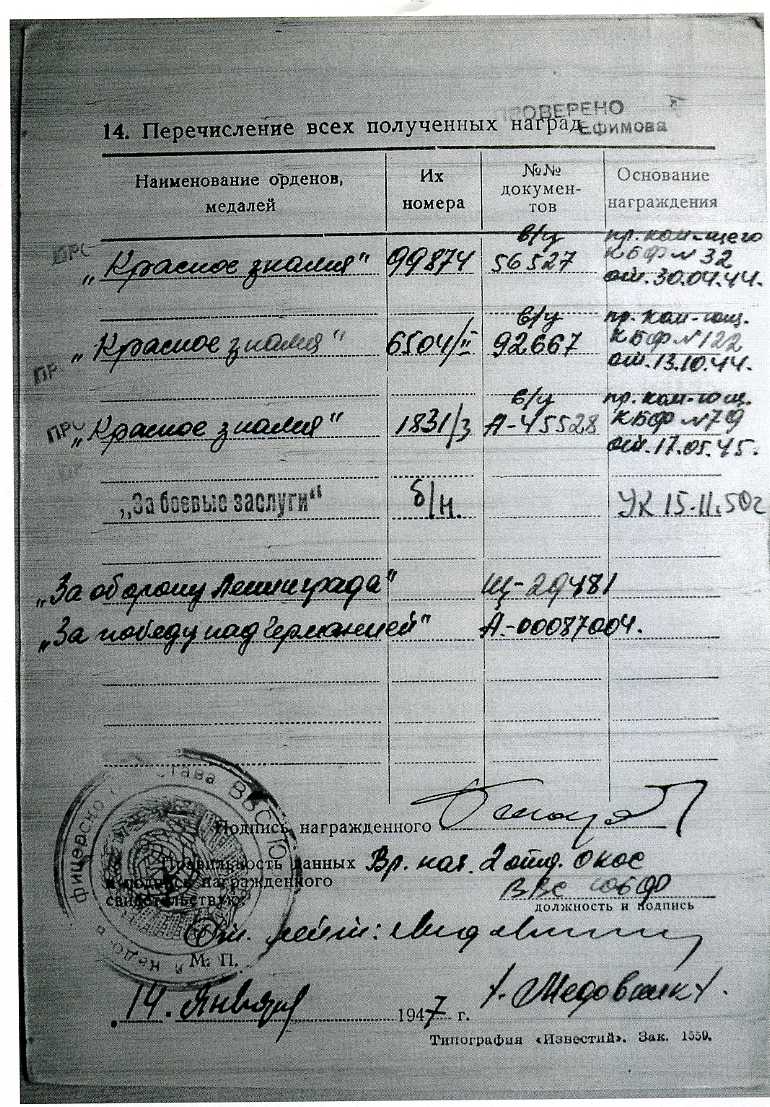 ПРОВЕРЕНО
Ефимова
14. Перечисление всех полученных наград
Наименование орденов, медалей
Их номера
№№ документов
Основание награждения
„Красное знамя" 99874 в/у 56527 пр. ком-щего КБФ № 32 от 30.04.44.
„Красное знамя" 6504/II в/у 92667 пр. ком-ющ. КБФ № 122 от 13.10.44.
„Красное знамя" 1831/3 в/у А-45528 пр. ком-ющ. КБФ № 79 от 17.05.45.
„За боевые заслуги" б/н. УК 15-11.50г
„За оборону Ленинграда" Щ-29481
„За победу над Германией" А-00087004.
Подпись награжденного
Правильность данных Вр. нач. 2 отд. ОКОС
и подпись награжденного ВВС ЮБФ
свидетельствую:
должность и подпись
Ст. лейт:
М. П.
14. Января 1947 г. /. Медовщик /.
Типография «Известий». Зак. 1559.